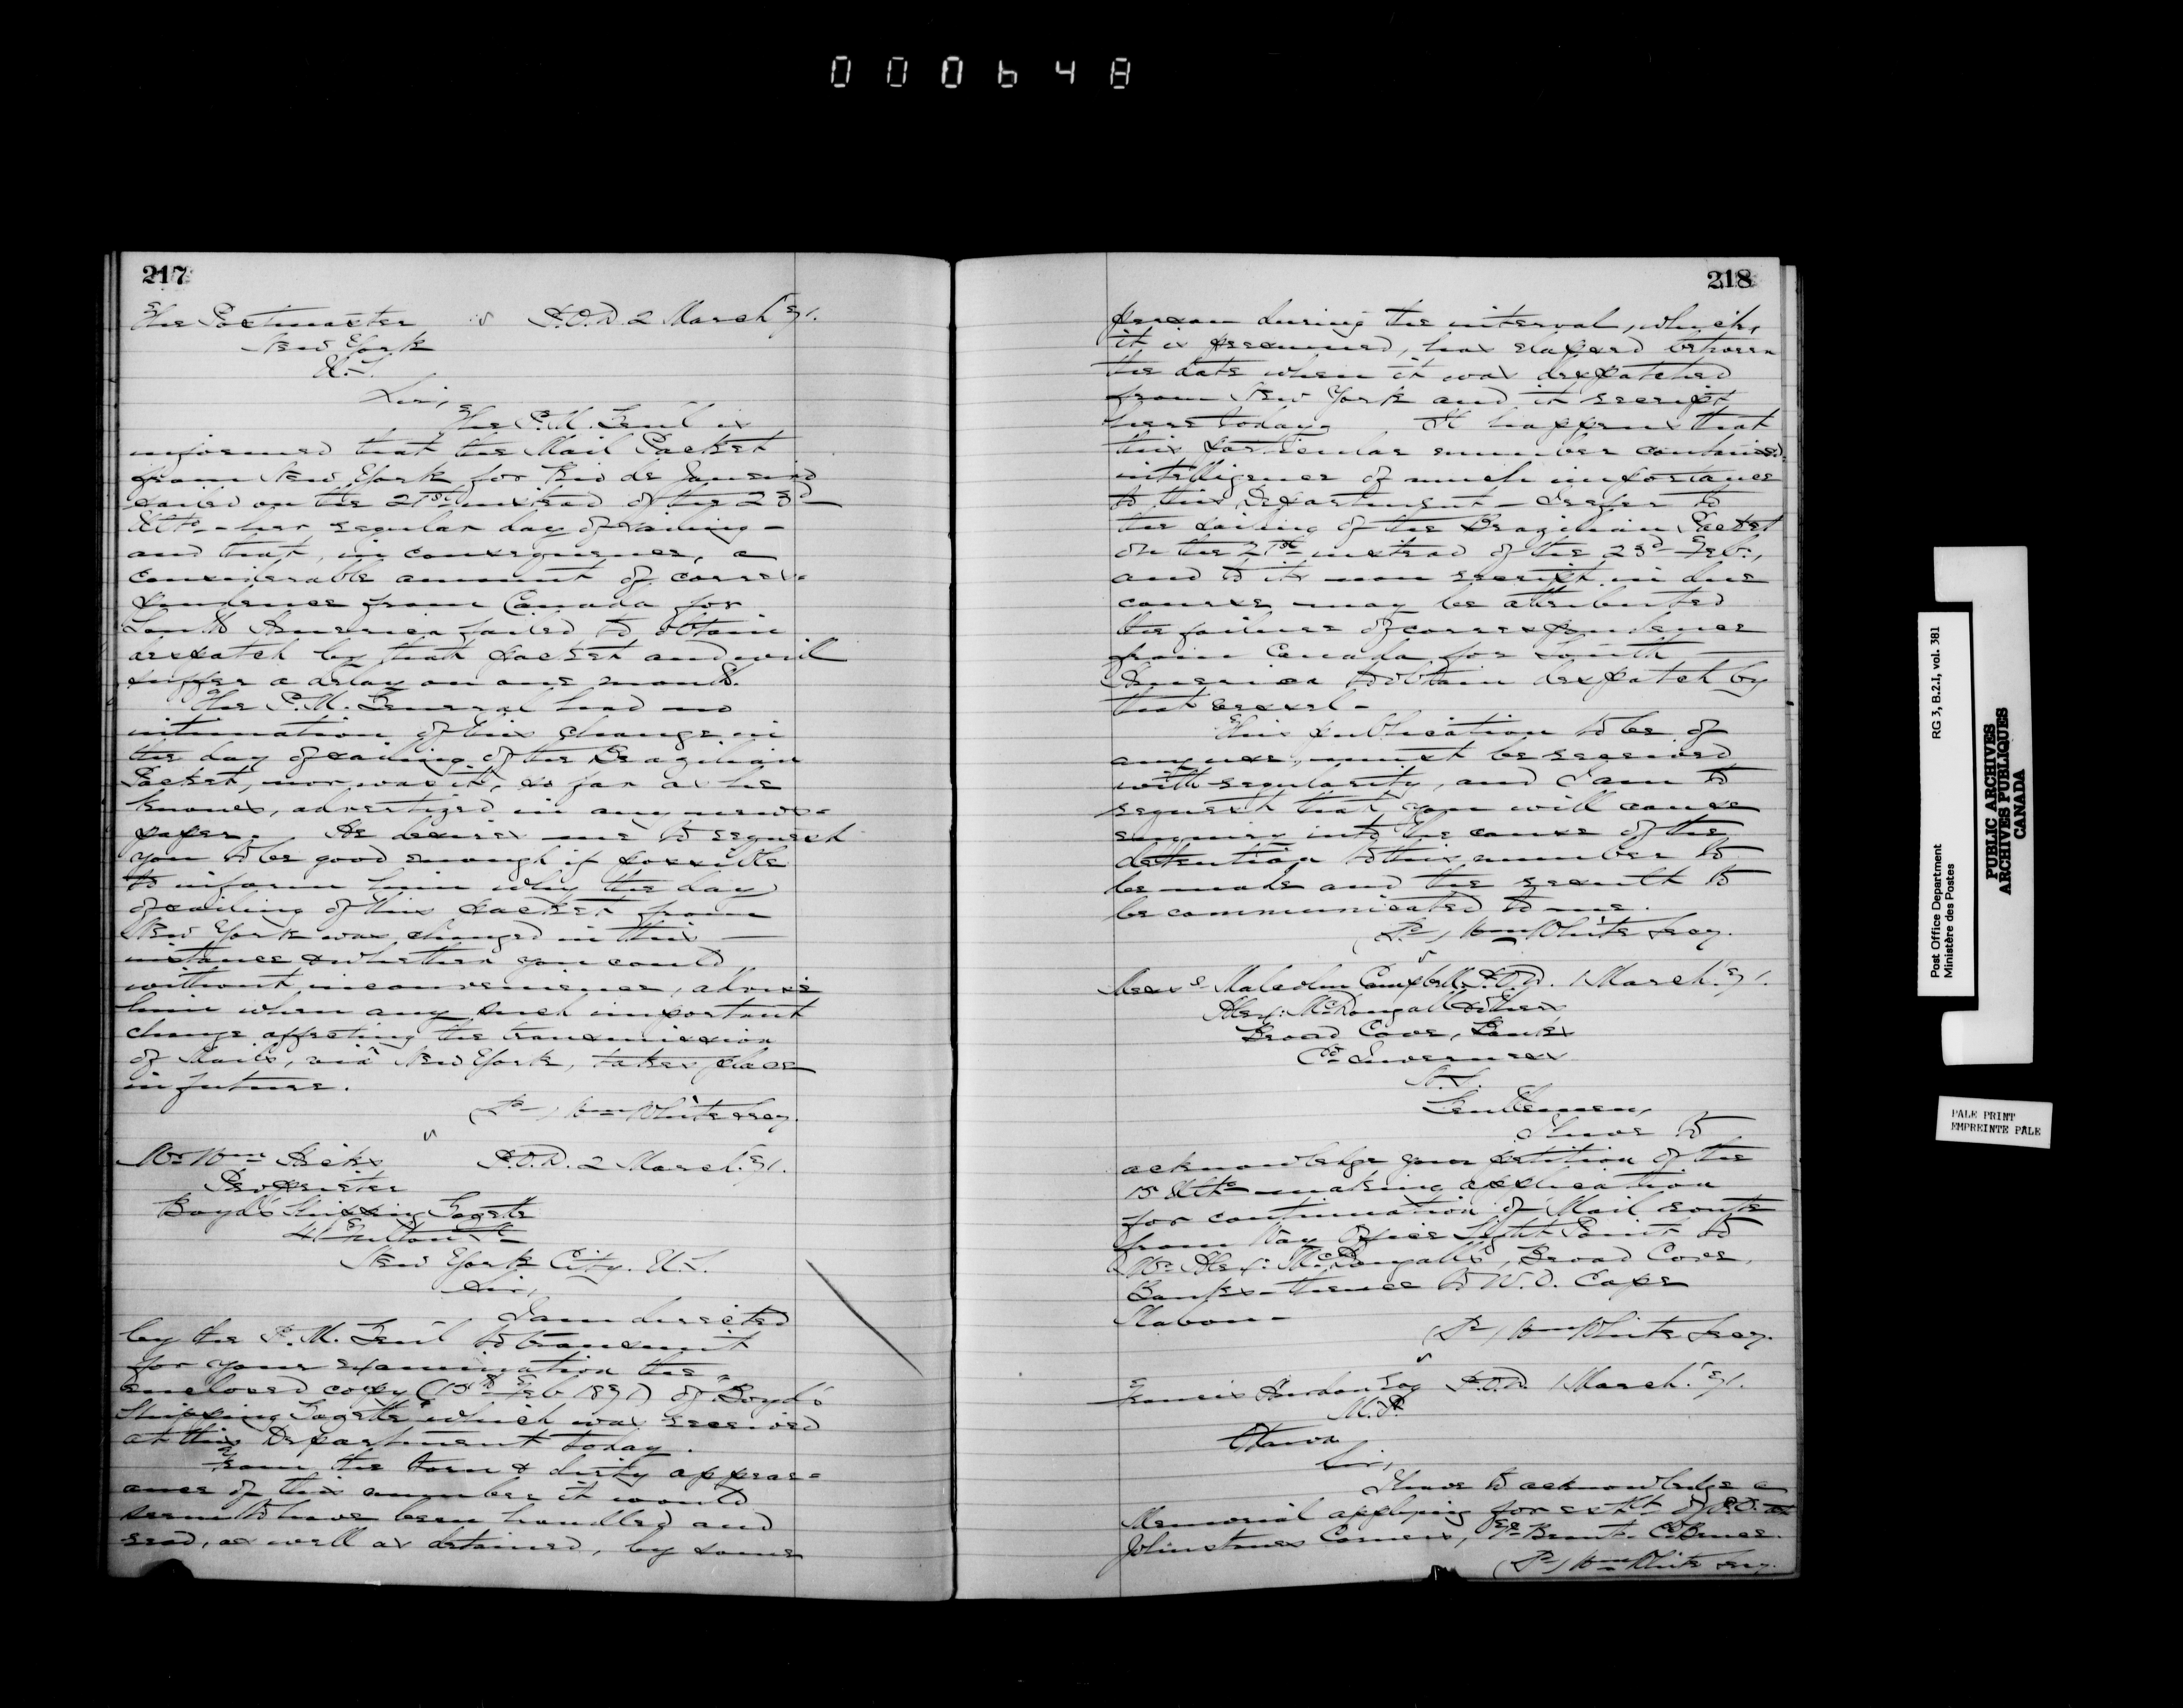 000648
217
The Postmaster P.O.D. 2 March '71.
New York
U.S.
Sir,
The P.M. Genl is
informed that the Mail Packet
from New York for Rio de Janeiro
sailed on the 21st instead of the 23d
Ulto - her regular day of sailing -
and that, in consequence, a
considerable amount of corres-
pondence from Canada for
South America failed to obtain
despatch by that packet and will
suffer a delay on one month.
The P.M. General had no
intimation of this change in
the day of sailing of the Brazilian
Packet, nor was it, so far as he
knows, advertized in any news-
paper. He desires me to request
you to be good enough if possible
to inform him why the day
of sailing of this packet from
New York was changed in this
instance & whether you could
without inconvenience, advise
him when any such important
change affecting the transmission
of Mails, viâ New York, takes place
in future.
(Sd) Wm White Secy.
Mr Wm Hicks P.O.D. 2 March. '71.
Proprietor
Boyd's Shipping Gazette
41 Fulton St
New York City. U.S.
Sir,
I am directed
by the P.M. Genl to transmit
for your examination the
enclosed copy (15th Feb 1871) of "Boyd's
Shipping Gazette" which was received
at this Department today.
From the torn & dirty appear-
ance of this number it would
seem to have been handled and
read, as well as detained, by some
218
person during the interval, which,
it is presumed, has elapsed between
the date when it was despatched
from New York and it receipt
here today. It happens that
this particular number contained
intelligence of much importance
to this Department - I refer to
the sailing of the Brazilian Packet
on the 21st instead of the 23d Feb.,
and to its non receipt in due
course may be attributed
the failure of correspondence
from Canada for South
America to obtain despatch by
that vessel -
This publication to be of
any use, must be received
with regularity, and I am to
request that you will cause
enquiry into the cause of the
detention to this number to
be made and the result to
be communicated to me.
(Sd) Wm White Secy.
Messrs Malcolm Campbell P.O.D. 1 March. '71.
Alex: McDougall & others
Broad Cove, Banks
Co Inverness
N.S.
Gentlemen,
I have to
acknowledge your petition of the
15 Ulto making application
for continuation of Mail route
from Way Office Sight Point to
Mr Alex: McDougall's, Broad Cove,
Banks - thence to W.O. Cape
Mabou -
(Sd) Wm White Secy.
Francis Hurdon Esq P.O.D. 1 March. '71.
M.P.
Ottawa
Sir,
I have to acknowledge a
Memorial applying for estbt of P.O. at
Johnstones Corners, Tp Brant. Co Bruce.
(Sd) Wm White Secy.
Post Office Department RG 3, B.2.I, vol. 381
Ministère des Postes
PUBLIC ARCHIVES
ARCHIVES PUBLIQUES
CANADA
PALE PRINT
EMPREINTE PALE